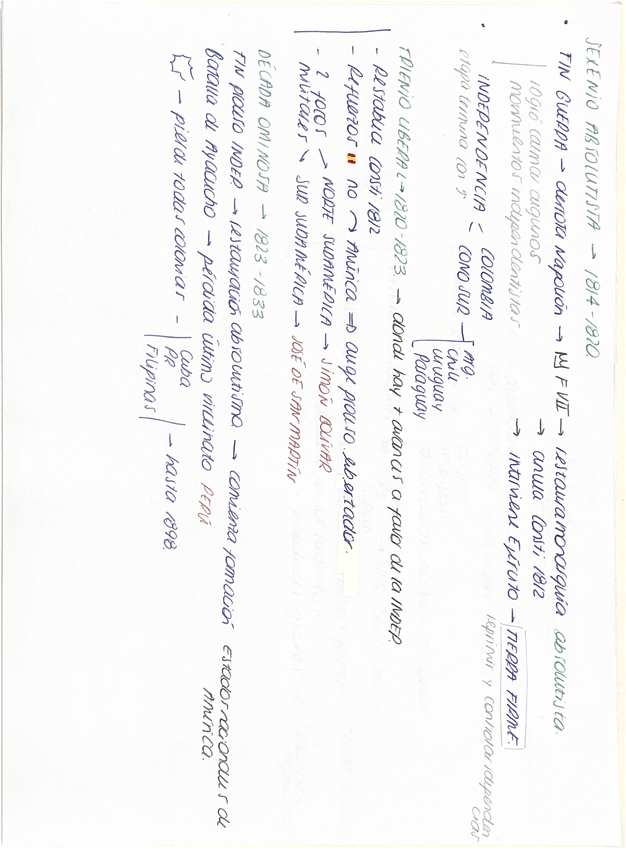 SEXENIO ABSOLUTISTA → 1814-1820
• FIN GUERRA → derrota Napoleón → F VII → restaura monarquía absolutista.
→ anula Consti 1812
logró calmar algunos movimientos independentistas
→ interviene Ejército → TIERRA FIRME.
reprimir y controlar independencias
• INDEPENDENCIA < COLOMBIA
CONO SUR → Arg. Chile Uruguay Paraguay
etapa termina con
TRIENIO LIBERAL → 1820-1823 → donde hay + avances a favor de la INDEP.
- Restablece Consti 1812
- Refuerzos 🇪🇸 no → América ⇒ auge proceso libertador.
- 2 focos militares → NORTE SUDAMÉRICA → SIMÓN BOLÍVAR
→ SUR SUDAMÉRICA → JOSÉ DE SAN MARTÍN
DÉCADA OMINOSA → 1823-1833
FIN proceso INDEP. → restauración absolutismo → comienza formación Estados nacionales de América.
Batalla de Ayacucho → pérdida último virreinato PERÚ
→ pierde todas colonias - Cuba PR Filipinas → hasta 1898.